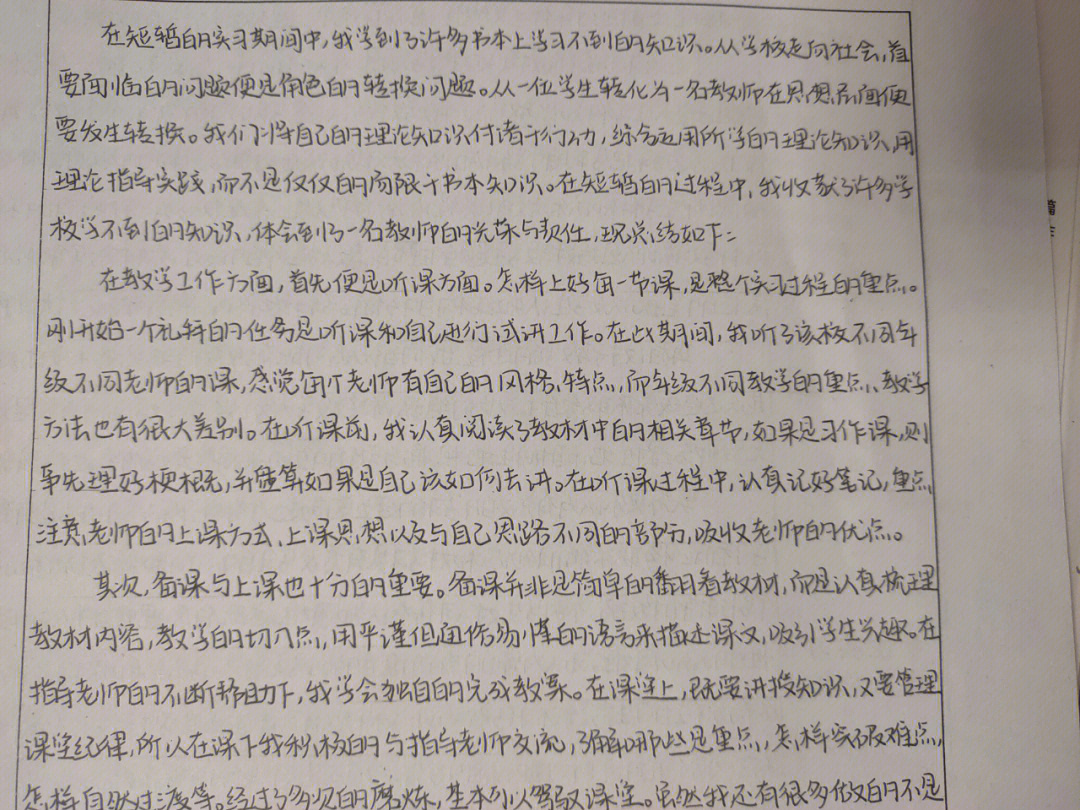 在短暂的实习期间中,我学到了许多书本上学习不到的知识。从学校走向社会,首
要面临的问题便是角色的转换问题。从一位学生转化为一名教师在思想层面便
要发生转换。我们将自己的理论知识付诸于行动,综合运用所学的理论知识,用
理论指导实践,而不是仅仅的局限于书本知识。在短暂的过程中,我收获了许多学
校学不到的知识,体会到了一名教师的光荣与责任,现总结如下:
在教学工作方面,首先便是听课方面。怎样上好每一节课,是整个实习过程的重点。
刚开始一个礼拜的任务是听课和自己进行试讲工作。在此期间,我听了该校不同年
级不同老师的课,感觉每个老师有自己的风格、特点,而年级不同教学的重点、教学
方法也有很大差别。在听课前,我认真阅读了教材中的相关章节,如果是习作课,则
事先理好梗概,并盘算如果是自己该如何去讲。在听课过程中,认真记好笔记,重点
注意老师的上课方式、上课思想以及与自己思路不同的部分,吸收老师的优点。
其次,备课与上课也十分的重要。备课并非是简单的翻看教材,而是认真梳理
教材内容,教学的切入点,用严谨但通俗易懂的语言来描述课文,吸引学生兴趣。在
指导老师的不断帮助下,我学会独自的完成教案。在课堂上,既要讲授知识,又要管理
课堂纪律,所以在课下我积极的与指导老师交流,了解哪些是重点,怎样突破难点,
怎样自然过渡等。经过了多次的磨炼,基本可以驾驭课堂。虽然我还有很多做的不足
篇